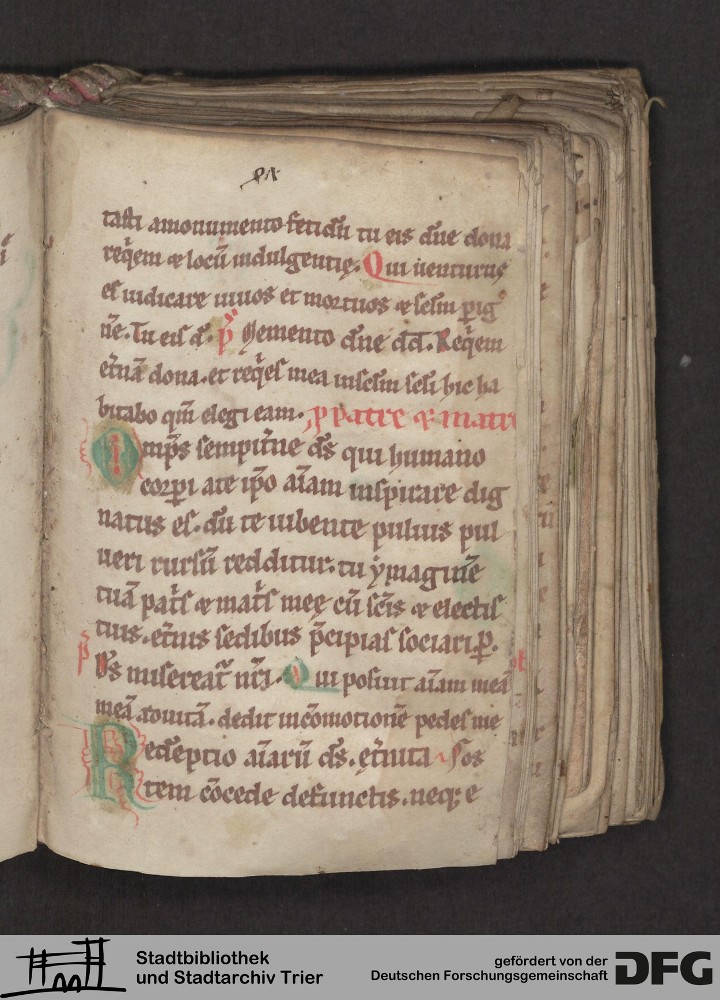 tasti a monumento fetidũ tu eis dñe dona
req̃em ⁊ locũ indulgentię. Qui uenturus
es iudicare uiuos et mortuos ⁊ sc̃lm p̱ ig
nẽ. Tu eis d̃. p̃s Memento dñe dd̃. Req̃em
et̃nã dona. et req̃es mea in sc̃lm sc̃li hic ha
bitabo qm̃ elegi eam. ꝓ patre ⁊ matre
Omp̃s sempit̃ne ds̃ qui humano
corp̱i a te ip̃o aĩam inspirare dig
natus es. dũ te iubente puluis pul
ueri rursũ redditur. tu ymaginẽ
tuã pat̃s ⁊ mat̃s meę cũ sc̃is ⁊ electis
tuis. et̃nis sedibus p̃cipias sociari. P̱.
p̃ Ds̃ misereat̃ nr̃i. Qui posuit aĩam meã
meã. ad uitã. ⁊ dedit in cõmotionẽ pedes me
Redẽptio aĩarũ ds̃. ęt̃nitã sos
tem cõcede defunctis. neq; e
Stadtbibliothek
und Stadtarchiv Trier
gefördert von der
Deutschen Forschungsgemeinschaft
DFG